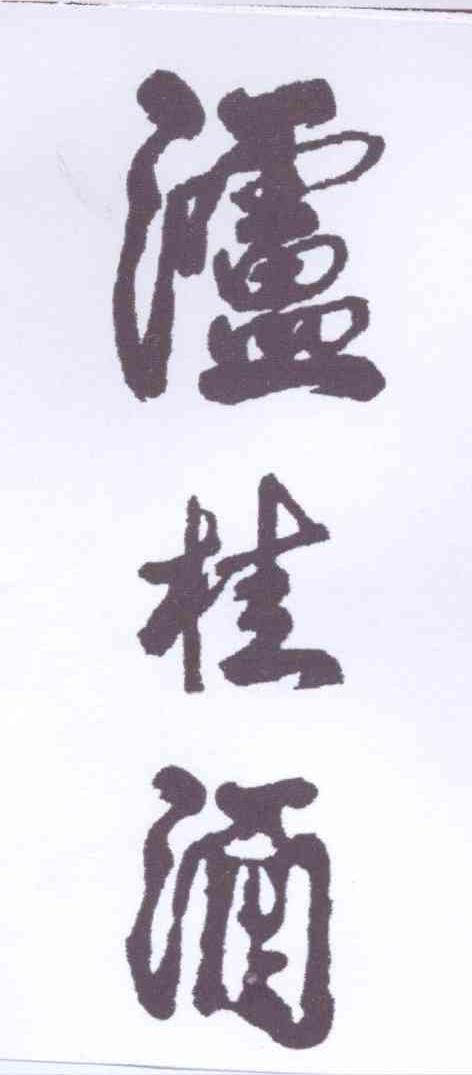 瀘桂酒